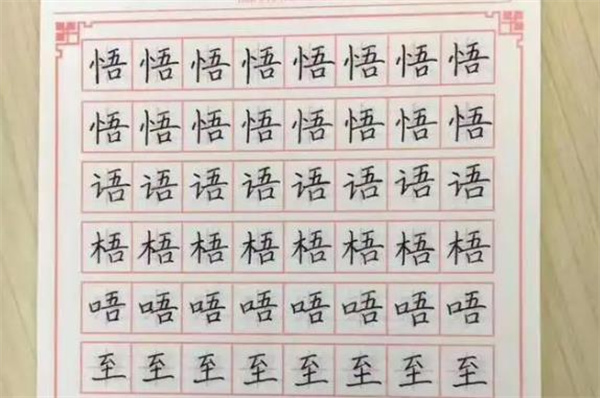 悟悟悟悟悟悟悟悟
悟悟悟悟悟悟悟悟
语语语语语语语语
梧梧梧梧梧梧梧梧
唔唔唔唔唔唔唔唔
至至至至至至至至